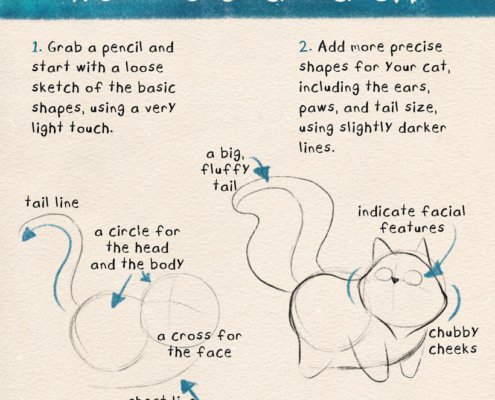 1. Grab a pencil and
start with a loose
sketch of the basic
shapes, using a very
light touch.
2. Add more precise
shapes for your cat,
including the ears,
paws, and tail size,
using slightly darker
lines.
tail line
a circle for
the head
and the body
a cross for
the face
a big,
fluffy
tail
indicate facial
features
chubby
cheeks